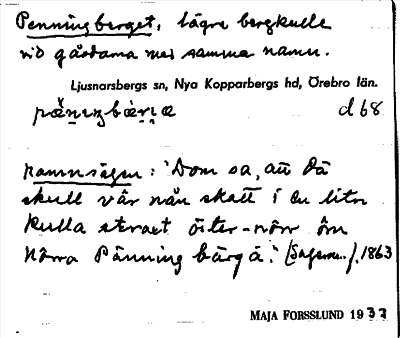 Penningberget, lägre bergkulle
vid gårdarna med samma namn.
Ljusnarsbergs sn, Nya Kopparbergs hd, Örebro län.
d 68
namnsägen: "Dom sa, att dä
skull vår nån skatt i en litn
kulla straxt öster-norr öm
Norra Pänning bärgä." (Sagesm. f. 1863
MAJA FORSSLUND 1937